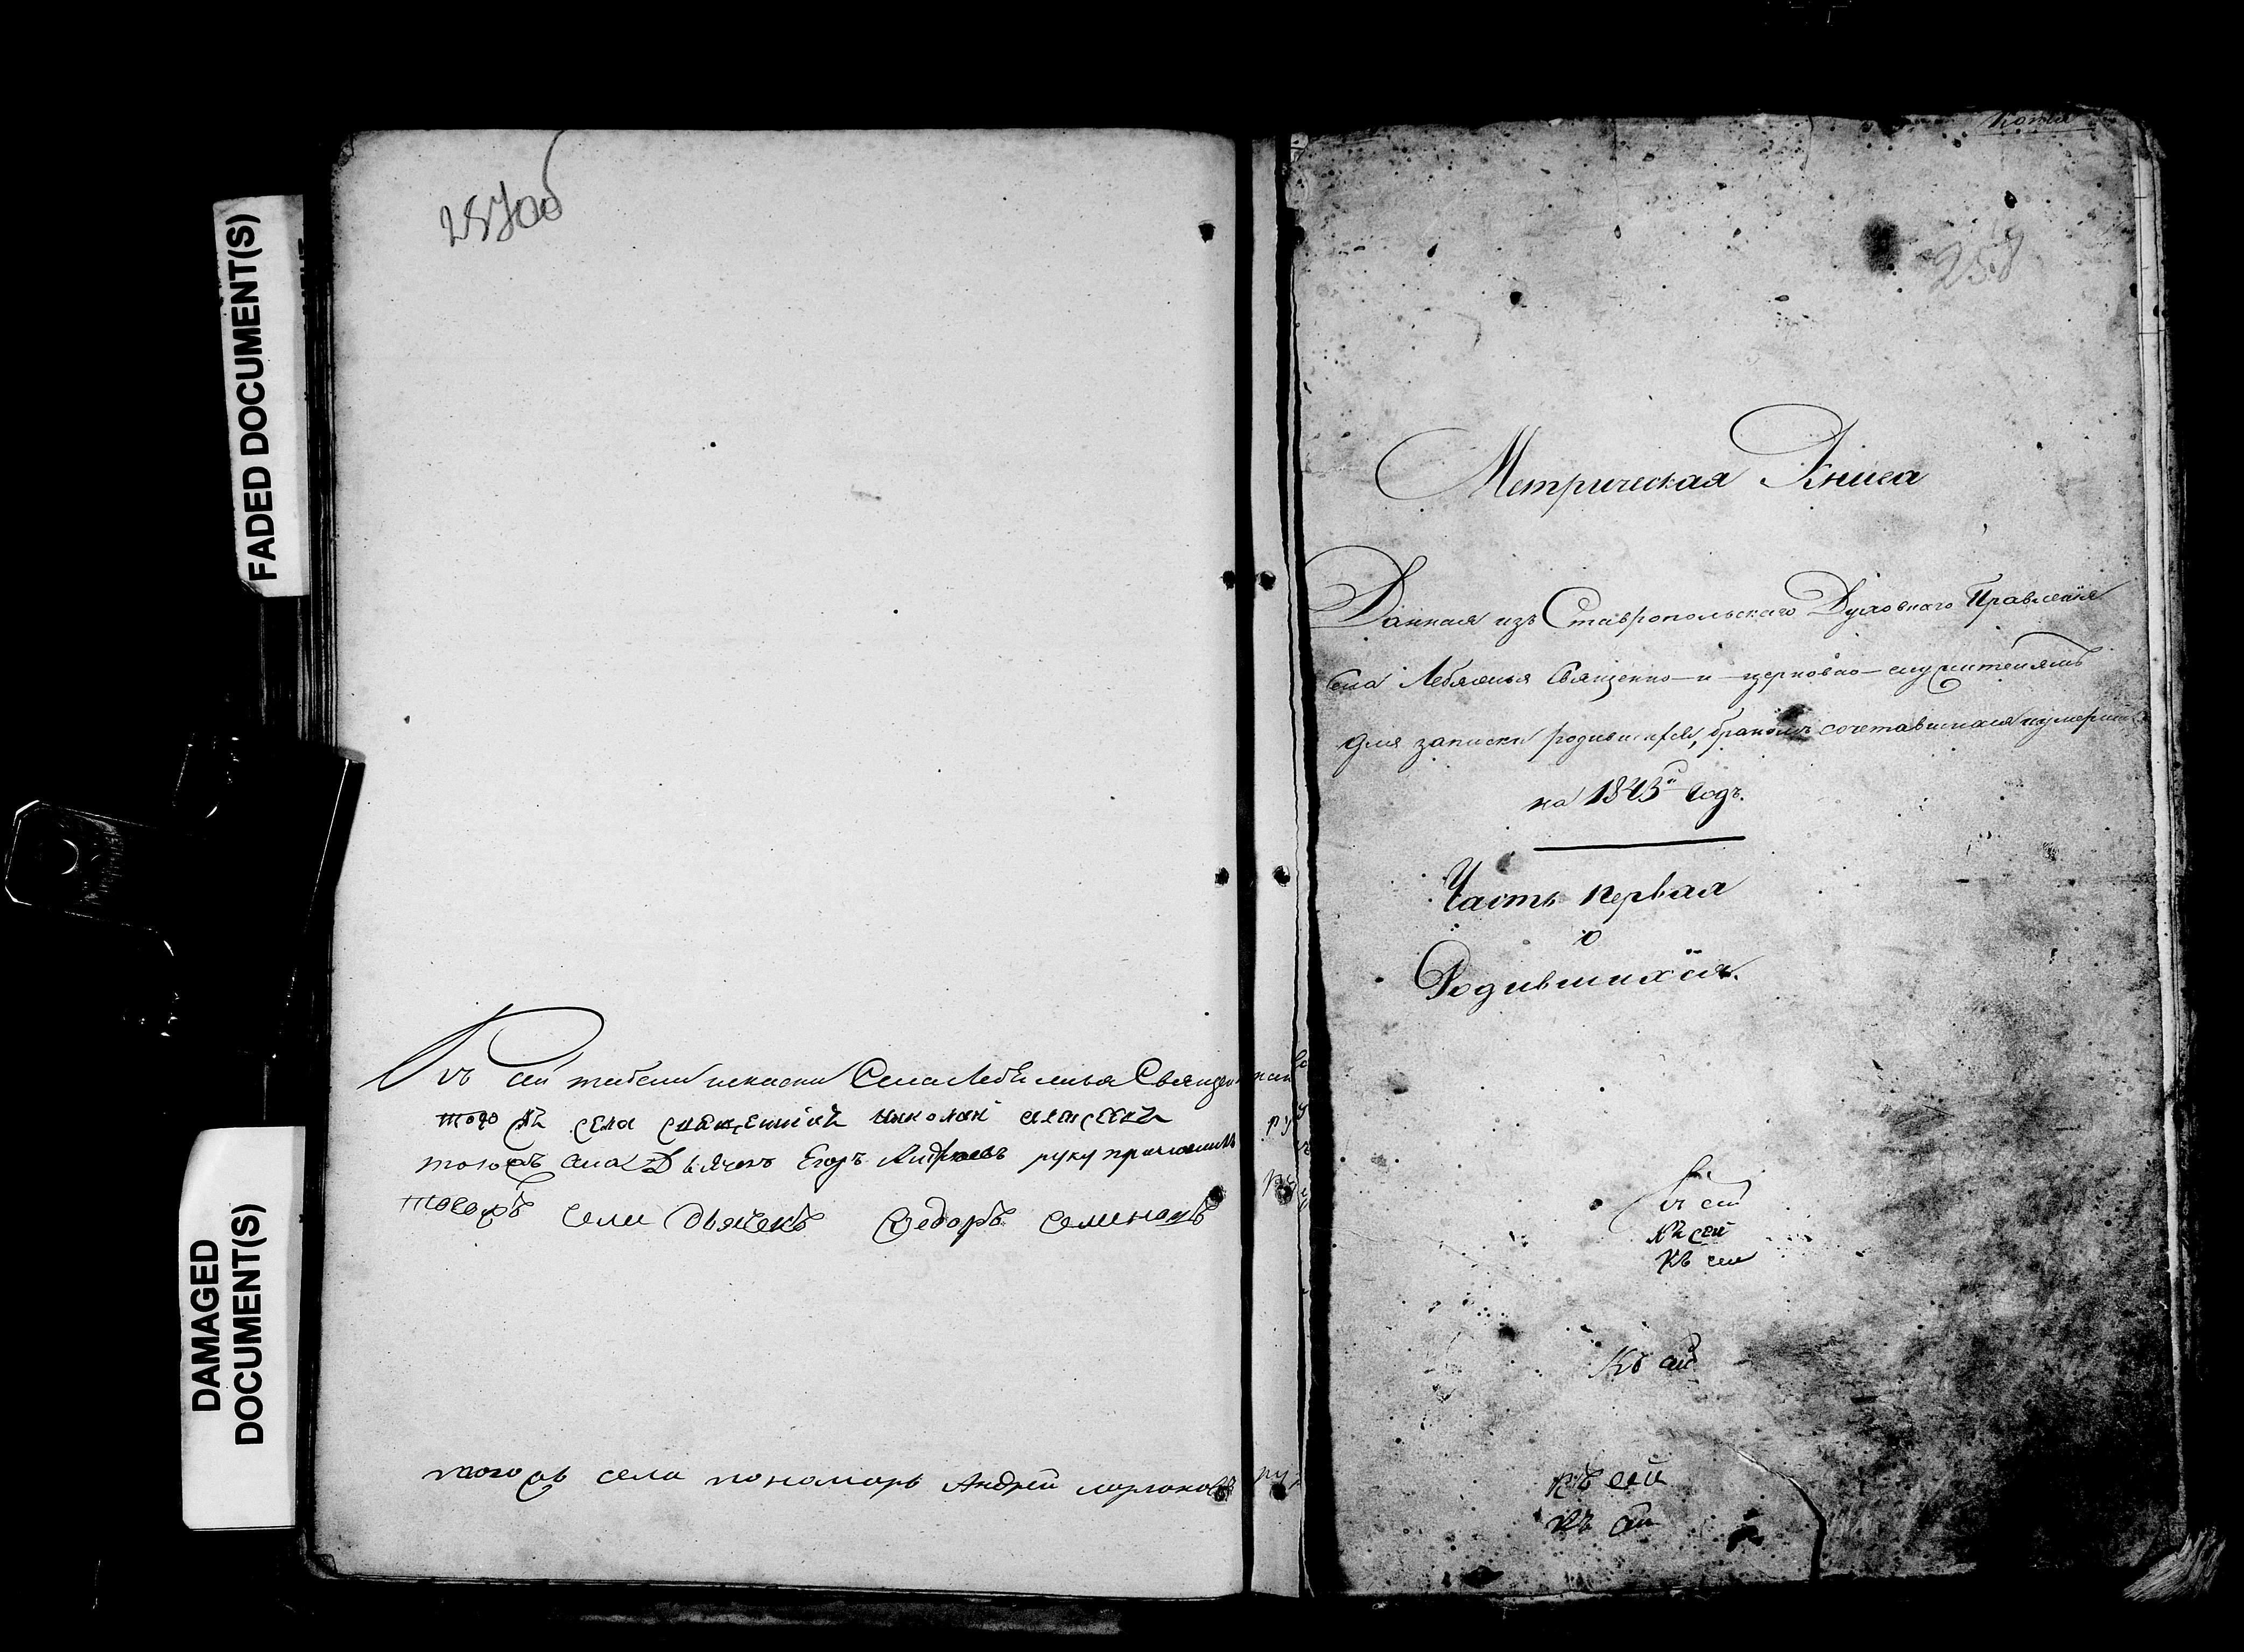 FADED DOCUMENT(S)
DAMAGED
DOCUMENT(S)
257об
Къ сей
Села Лебяжья Священ
тогожъ села священникъ николай алексеевъ
тогожъ села Дьячекъ Егоръ Андреевъ руку приложилъ
тогожъ села дьячекъ Федоръ семеновъ
тогожъ села пономарь Андрей
Копія
258
Метрическая Книга
Данная изъ Ставропольскаго Духовнаго Правленія
села Лебяжья Священно-и-церковно-служителямъ
для записки родившихся, бракомъ сочетавшихся и умерших
на 1843й Годъ.
Часть первая
о
Родившихся.
Къ сей
Къ сей
Къ сей
Къ сей
Къ сей
Къ сей